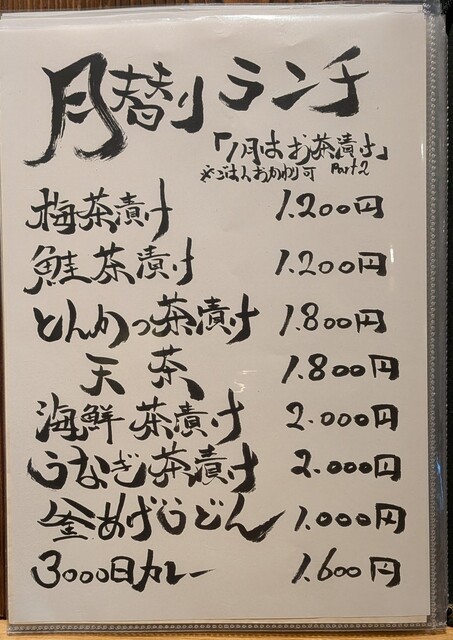 月替りランチ
「1月はお茶漬け」
※ごはんおかわり可 Part2
梅茶漬け 1.200円
鮭茶漬け 1.200円
とんかつ茶漬け 1.800円
天茶 1.800円
海鮮茶漬け 2.000円
うなぎ茶漬け 2.000円
釜あげうどん 1.000円
3000日カレー 1.600円